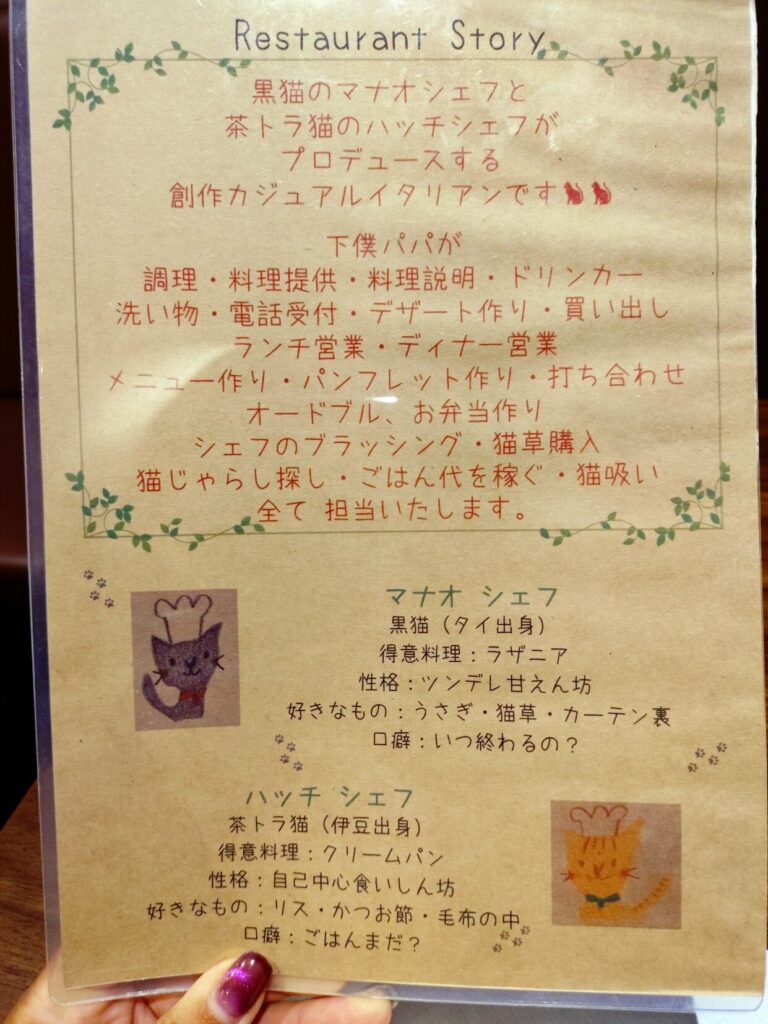 Restaurant Story
黒猫のマナオシェフと
茶トラ猫のハッチシェフが
プロデュースする
創作カジュアルイタリアンです🐈🐈
下僕パパが
調理・料理提供・料理説明・ドリンカー
洗い物・電話受付・デザート作り・買い出し
ランチ営業・ディナー営業
メニュー作り・パンフレット作り・打ち合わせ
オードブル、お弁当作り
シェフのブラッシング・猫草購入
猫じゃらし探し・ごはん代を稼ぐ・猫吸い
全て 担当いたします。
マナオ シェフ
黒猫（タイ出身）
得意料理：ラザニア
性格：ツンデレ甘えん坊
好きなもの：うさぎ・猫草・カーテン裏
口癖：いつ終わるの？
ハッチ シェフ
茶トラ猫（伊豆出身）
得意料理：クリームパン
性格：自己中心食いしん坊
好きなもの：リス・かつお節・毛布の中
口癖：ごはんまだ？